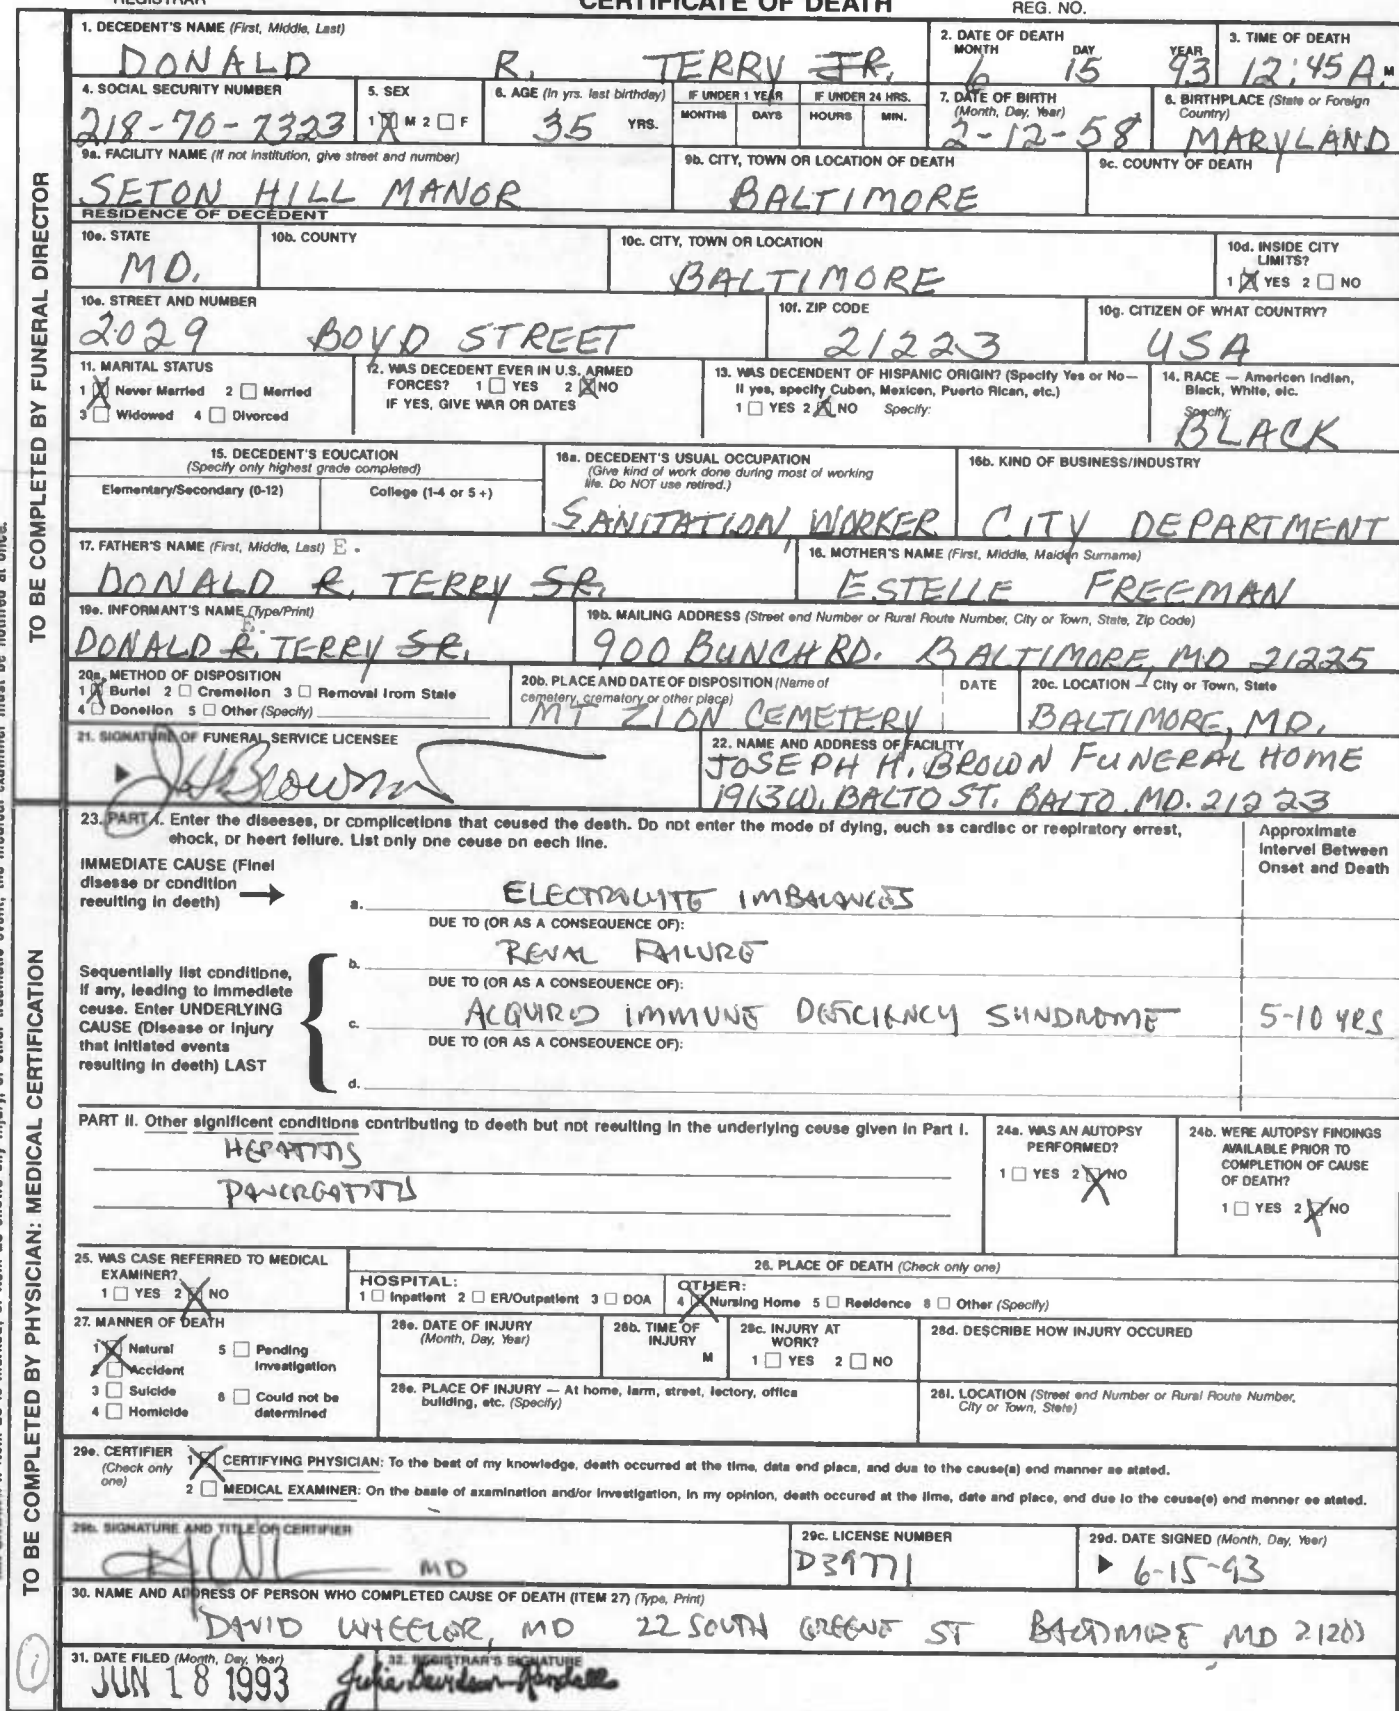 REGISTRAR
CERTIFICATE OF DEATH
REG. NO.
1. DECEDENT'S NAME (First, Middle, Last)
DONALD R. TERRY JR.
2. DATE OF DEATH
MONTH DAY YEAR
6 15 93
3. TIME OF DEATH
12:45 A. M
4. SOCIAL SECURITY NUMBER
218-70-7323
5. SEX
1 X M 2 ☐ F
6. AGE (In yrs. last birthday)
35 YRS.
IF UNDER 1 YEAR
MONTHS DAYS
IF UNDER 24 HRS.
HOURS MIN.
7. DATE OF BIRTH
(Month, Day, Year)
2-12-58
8. BIRTHPLACE (State or Foreign Country)
MARYLAND
9a. FACILITY NAME (If not institution, give street and number)
SETON HILL MANOR
9b. CITY, TOWN OR LOCATION OF DEATH
BALTIMORE
9c. COUNTY OF DEATH
RESIDENCE OF DECEDENT
10a. STATE
MD.
10b. COUNTY
10c. CITY, TOWN OR LOCATION
BALTIMORE
10d. INSIDE CITY LIMITS?
1 X YES 2 ☐ NO
10e. STREET AND NUMBER
2029 BOYD STREET
10f. ZIP CODE
21223
10g. CITIZEN OF WHAT COUNTRY?
USA
11. MARITAL STATUS
1 X Never Married 2 ☐ Married
3 ☐ Widowed 4 ☐ Divorced
12. WAS DECEDENT EVER IN U.S. ARMED
FORCES? 1 ☐ YES 2 X NO
IF YES, GIVE WAR OR DATES
13. WAS DECENDENT OF HISPANIC ORIGIN? (Specify Yes or No—
If yes, specify Cuban, Mexican, Puerto Rican, etc.)
1 ☐ YES 2 X NO Specify:
14. RACE — American Indian,
Black, White, etc.
Specify:
BLACK
15. DECEDENT'S EDUCATION
(Specify only highest grade completed)
Elementary/Secondary (0-12) College (1-4 or 5+)
16a. DECEDENT'S USUAL OCCUPATION
(Give kind of work done during most of working
life. Do NOT use retired.)
SANITATION WORKER
16b. KIND OF BUSINESS/INDUSTRY
CITY DEPARTMENT
17. FATHER'S NAME (First, Middle, Last) E.
DONALD R. TERRY SR.
18. MOTHER'S NAME (First, Middle, Maiden Surname)
ESTELLE FREEMAN
19a. INFORMANT'S NAME (Type/Print)
E.
DONALD R. TERRY SR.
19b. MAILING ADDRESS (Street and Number or Rural Route Number, City or Town, State, Zip Code)
900 BUNCH RD. BALTIMORE, MD 21225
20a. METHOD OF DISPOSITION
1 X Burial 2 ☐ Cremation 3 ☐ Removal from State
4 ☐ Donation 5 ☐ Other (Specify)
20b. PLACE AND DATE OF DISPOSITION (Name of
cemetery, crematory or other place)
MT ZION CEMETERY
DATE
20c. LOCATION — City or Town, State
BALTIMORE, MD.
21. SIGNATURE OF FUNERAL SERVICE LICENSEE
JHBrown
22. NAME AND ADDRESS OF FACILITY
JOSEPH H. BROWN FUNERAL HOME
1913 W. BALTO ST. BALTO. MD. 21223
23. PART I. Enter the diseases, or complications that caused the death. Do not enter the mode of dying, such as cardiac or respiratory arrest,
shock, or heart failure. List only one cause on each line.
Approximate
Interval Between
Onset and Death
IMMEDIATE CAUSE (Final
disease or condition
resulting in death)
a. ELECTROLYTE IMBALANCES
DUE TO (OR AS A CONSEQUENCE OF):
b. RENAL FAILURE
Sequentially list conditions,
if any, leading to immediate
cause. Enter UNDERLYING
CAUSE (Disease or injury
that initiated events
resulting in death) LAST
DUE TO (OR AS A CONSEQUENCE OF):
c. ACQUIRED IMMUNE DEFICIENCY SYNDROME 5-10 YRS
DUE TO (OR AS A CONSEQUENCE OF):
d.
PART II. Other significant conditions contributing to death but not resulting in the underlying cause given in Part I.
HEPATITIS
PANCREATITIS
24a. WAS AN AUTOPSY
PERFORMED?
1 ☐ YES 2 X NO
24b. WERE AUTOPSY FINDINGS
AVAILABLE PRIOR TO
COMPLETION OF CAUSE
OF DEATH?
1 ☐ YES 2 X NO
25. WAS CASE REFERRED TO MEDICAL
EXAMINER?
1 ☐ YES 2 X NO
26. PLACE OF DEATH (Check only one)
HOSPITAL:
1 ☐ Inpatient 2 ☐ ER/Outpatient 3 ☐ DOA
OTHER:
4 X Nursing Home 5 ☐ Residence 6 ☐ Other (Specify)
27. MANNER OF DEATH
1 X Natural 5 ☐ Pending Investigation
2 ☐ Accident
3 ☐ Suicide 6 ☐ Could not be determined
4 ☐ Homicide
28a. DATE OF INJURY
(Month, Day, Year)
28b. TIME OF INJURY
M
28c. INJURY AT WORK?
1 ☐ YES 2 ☐ NO
28d. DESCRIBE HOW INJURY OCCURED
28e. PLACE OF INJURY — At home, farm, street, factory, office
building, etc. (Specify)
28f. LOCATION (Street and Number or Rural Route Number,
City or Town, State)
29a. CERTIFIER
(Check only one)
1 X CERTIFYING PHYSICIAN: To the best of my knowledge, death occurred at the time, date and place, and due to the cause(s) and manner as stated.
2 ☐ MEDICAL EXAMINER: On the basis of examination and/or investigation, in my opinion, death occured at the time, date and place, and due to the cause(s) and manner as stated.
29b. SIGNATURE AND TITLE OF CERTIFIER
MD
29c. LICENSE NUMBER
D39771
29d. DATE SIGNED (Month, Day, Year)
6-15-93
30. NAME AND ADDRESS OF PERSON WHO COMPLETED CAUSE OF DEATH (ITEM 27) (Type, Print)
DAVID WHEELER, MD 22 SOUTH GREENE ST BALTIMORE MD 21201
31. DATE FILED (Month, Day, Year)
JUN 18 1993
32. REGISTRAR'S SIGNATURE
Julia Davidson-Randall
TO BE COMPLETED BY FUNERAL DIRECTOR
TO BE COMPLETED BY PHYSICIAN: MEDICAL CERTIFICATION
1